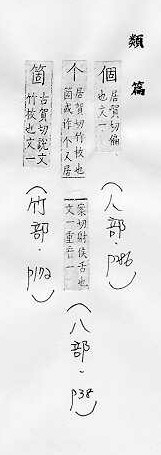 類 篇
個 居賀切偏
也文一
(人部.p286)
个 居賀切竹枚也
箇或作个又居
案切射侯舌也
文一重音一
(八部.p38)
箇 古賀切說文
竹枚也文一
(竹部.p172)